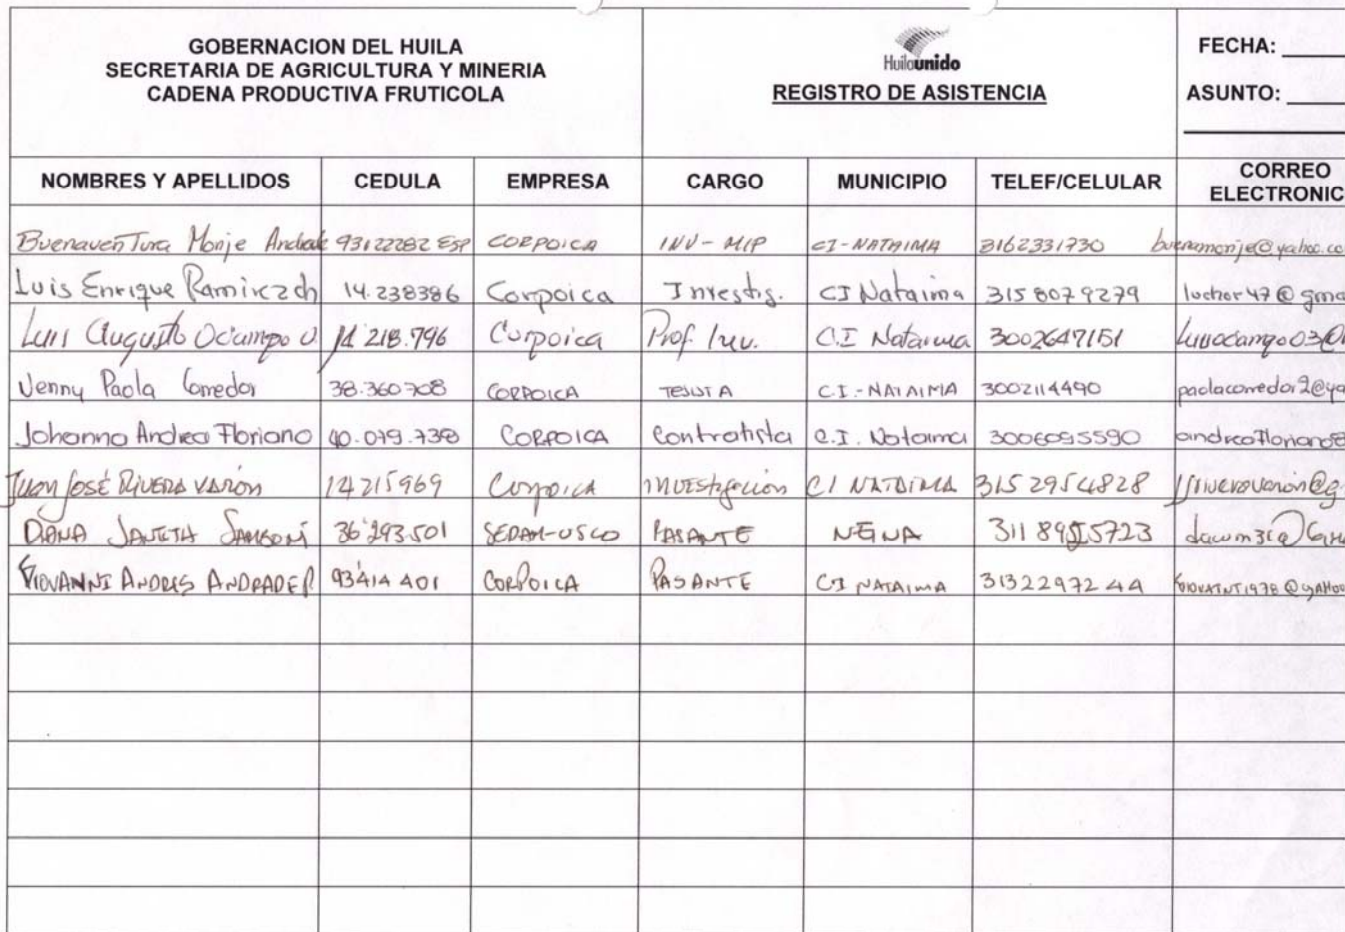 GOBERNACION DEL HUILA
SECRETARIA DE AGRICULTURA Y MINERIA
CADENA PRODUCTIVA FRUTICOLA
Huilaunido
REGISTRO DE ASISTENCIA
FECHA:
ASUNTO:
NOMBRES Y APELLIDOS CEDULA EMPRESA CARGO MUNICIPIO TELEF/CELULAR CORREO ELECTRONIC
BuenavenTura Monje Andrade 93122282 ESP CORPOICA INV-MIP CI-NATAIMA 3162331730 buenamonje@yahoo.co
Luis Enrique Ramirez ch 14.238386 Corpoica Investig. CI Nataima 315 8079279 luchor47@gma
Luis Augusto Ocampo O. 14 218.796 Corpoica Prof. Inv. C.I Nataima 3002647151
Jenny Paola Corredor 38.360708 CORPOICA TESISTA C.I.-NATAIMA 3002114490 paolacorredor2@ya
Johanna Andrea Floriano 40.079.738 CORPOICA Contratista C.I. Nataima 3006095590
Juan José RIVERA VARÓN 14215969 Corpoica investigación CI NATAIMA 315 2954828 jjriveravaron@g
DIANA JANETH SAMBONÍ 36'293.501 SEDAM-USCO PASANTE NEIVA
GIOVANNI ANDRES ANDRADE P 93414401 CORPOICA PASANTE CI NATAIMA 3132297244